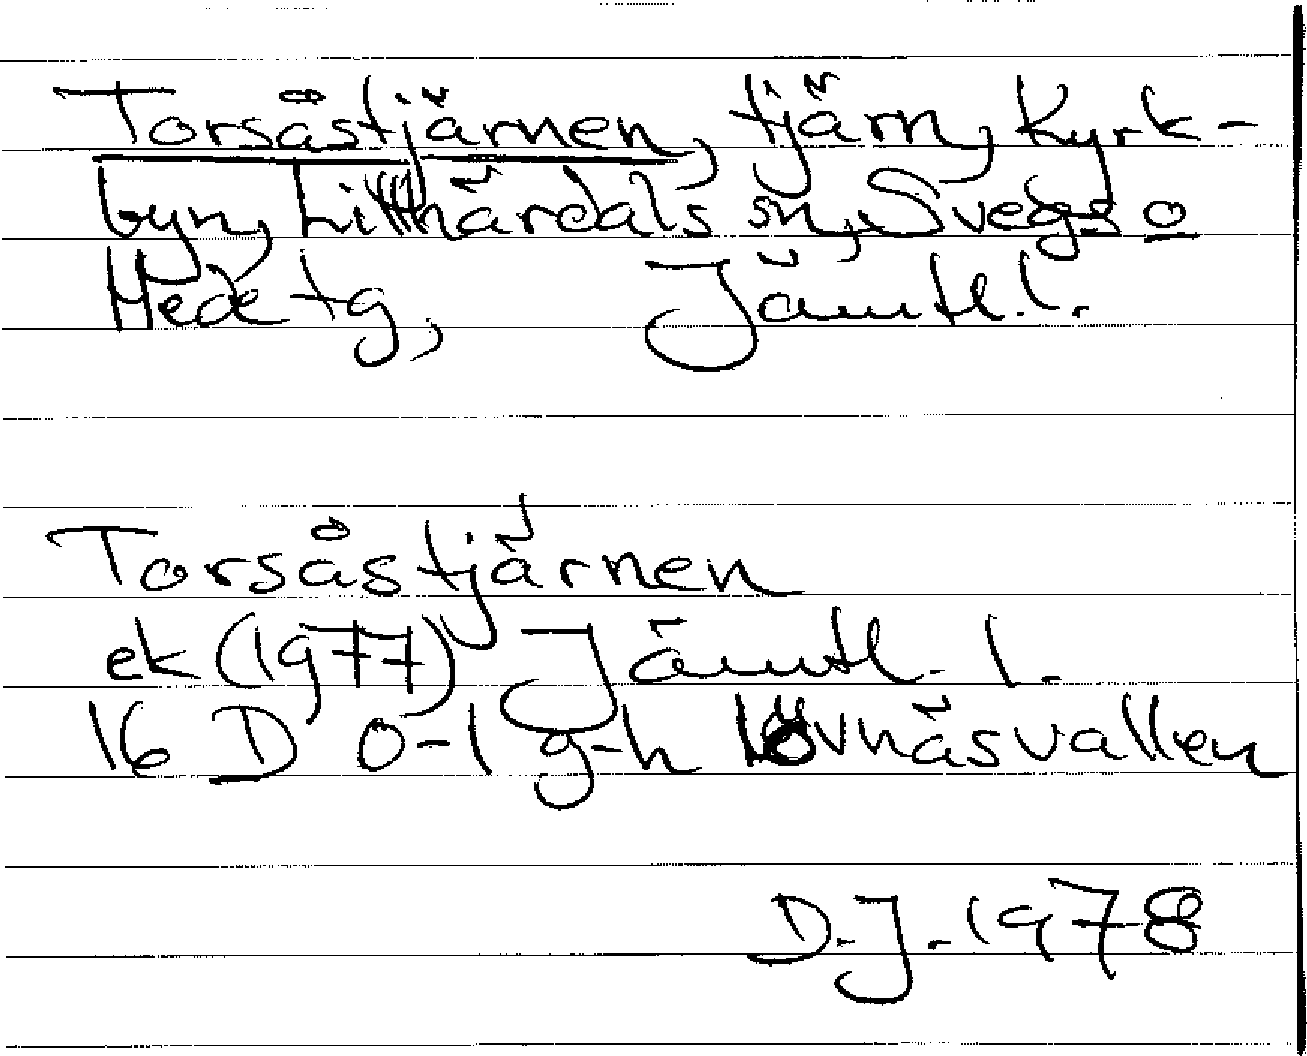 Torsåstjärnen, tjärn, Kyrk-
byn, Lillhärdals sn, Svegs o
Hede tg, Jämtl. l.
Torsåstjärnen
ek (1977) Jämtl. l.
16 D 0-1 g-h Lövnäsvallen
D.J. 1978